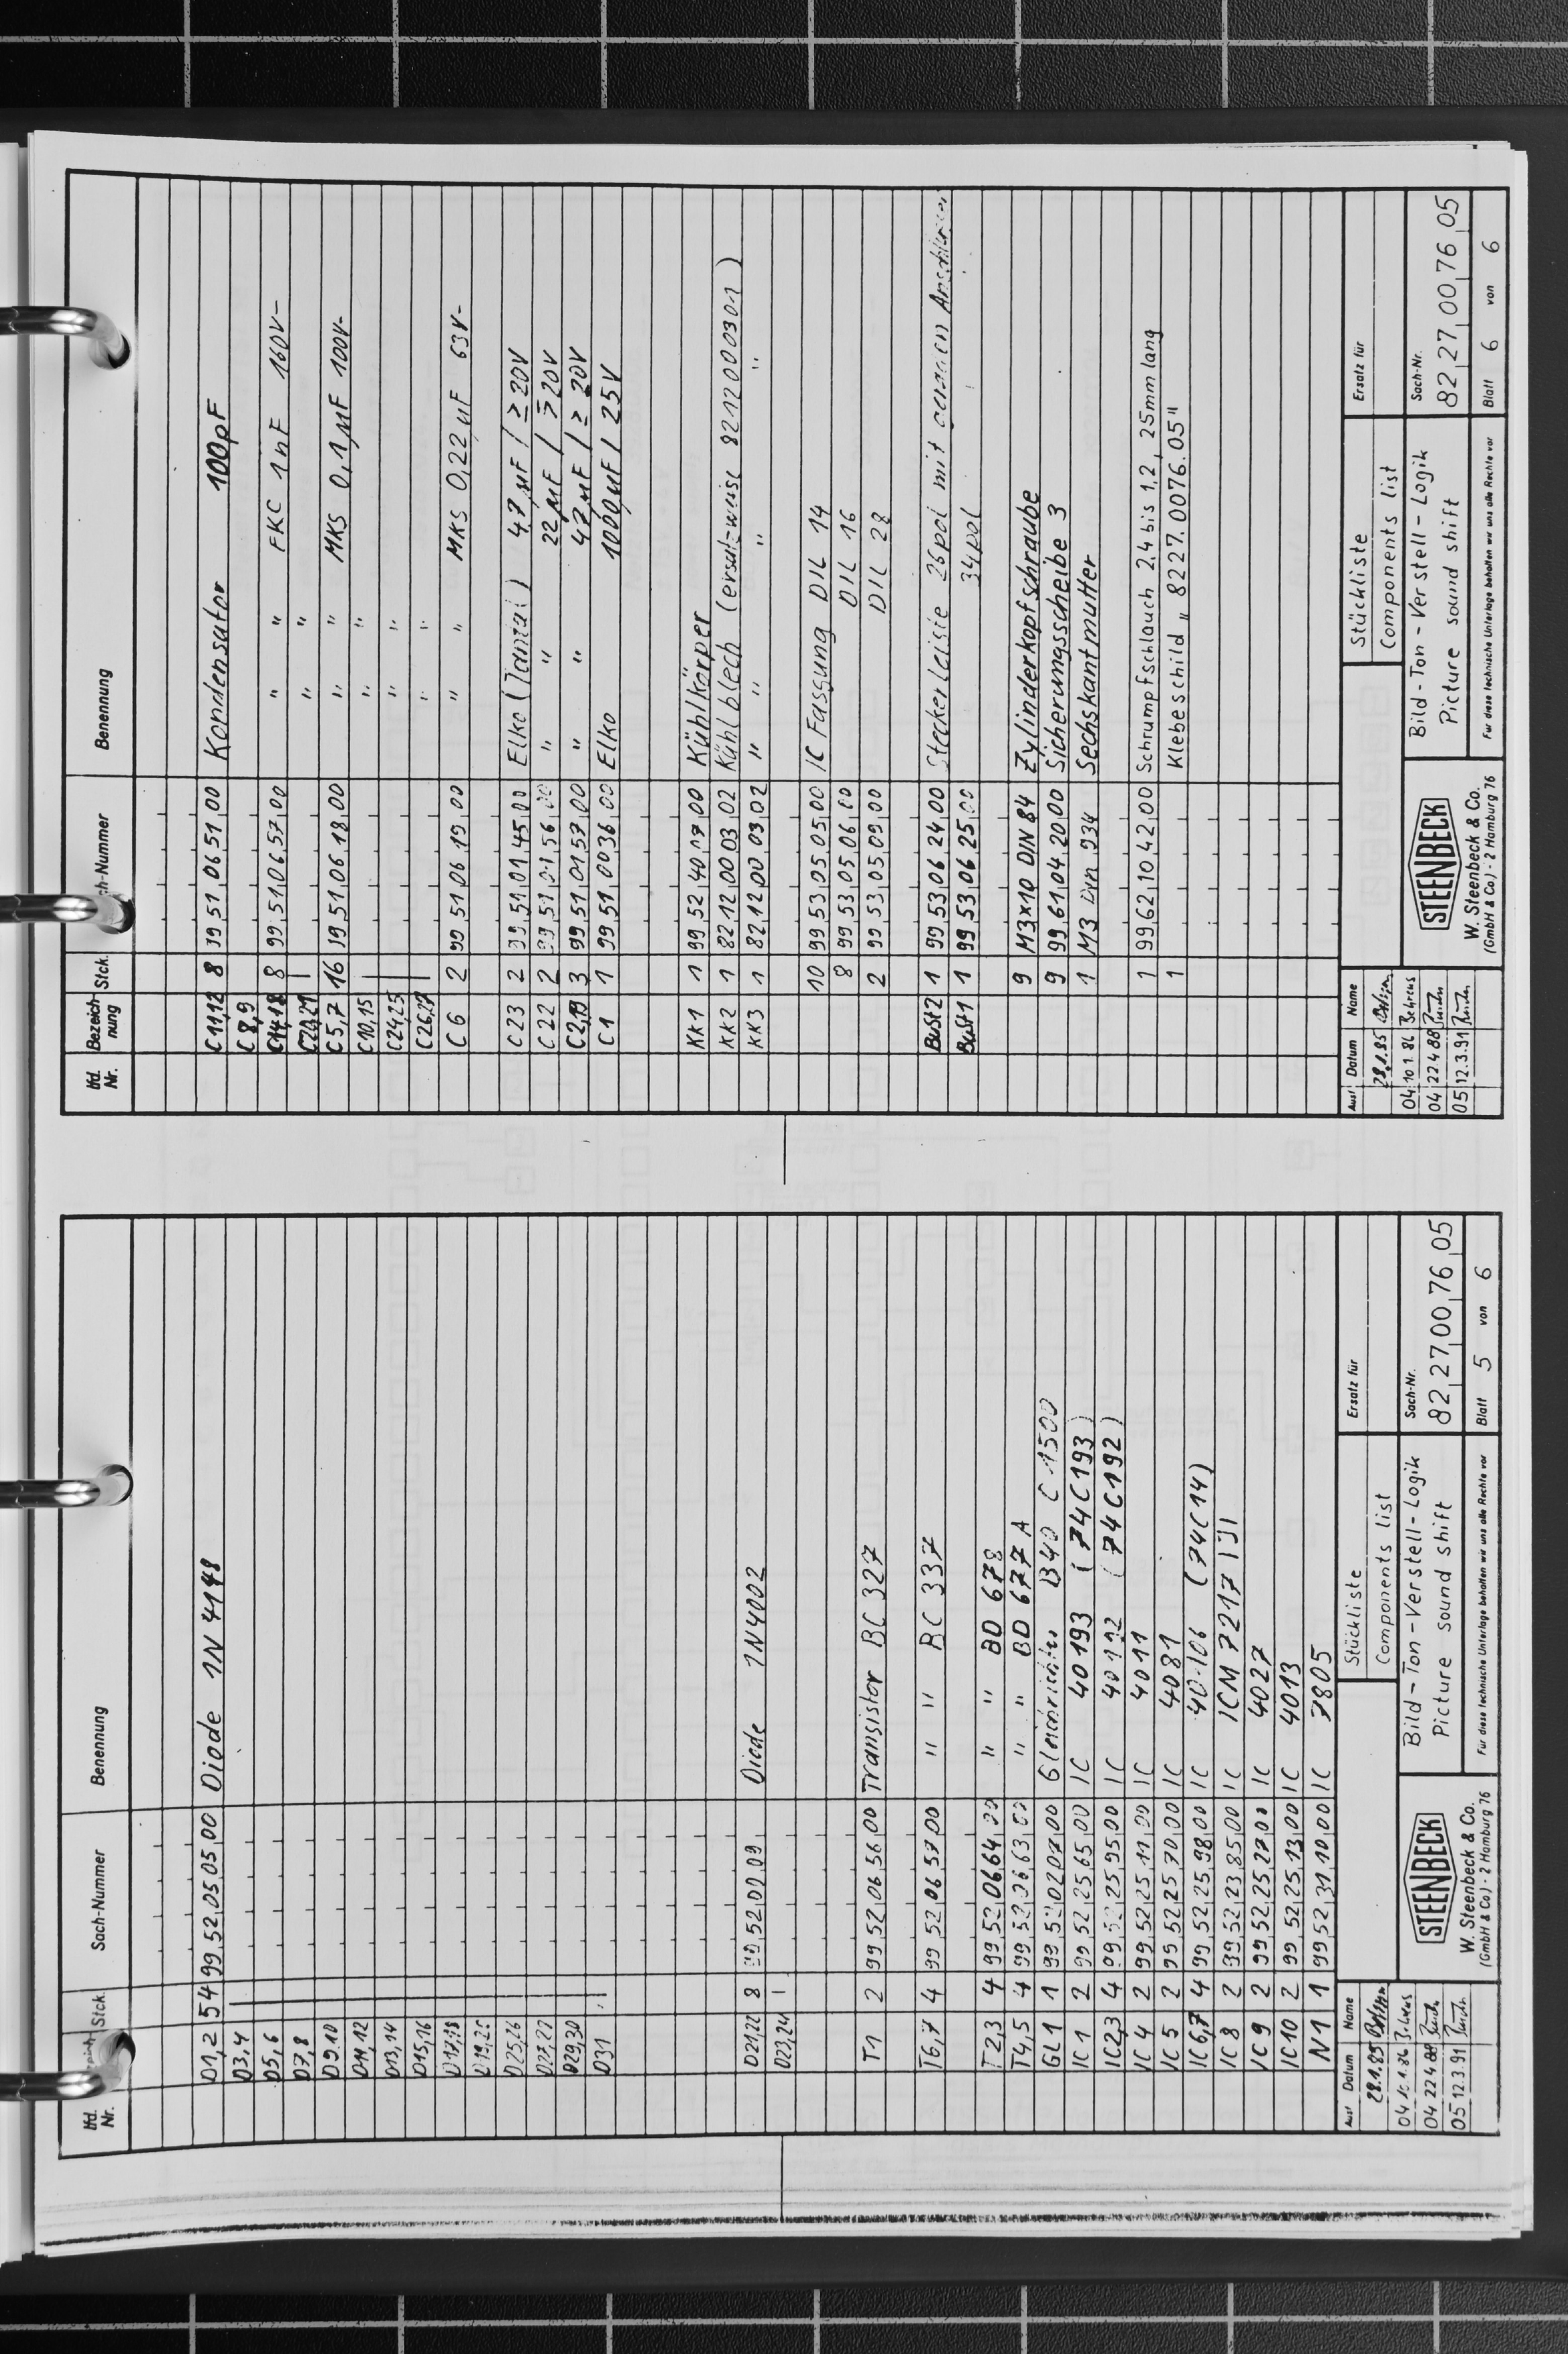 lfd. Nr. Stck. Sach-Nummer Benennung
D1,2 54 99,52,05,05,00 Diode 1N 4148
D3,4
D5,6
D7,8
D9,10
D11,12
D13,14
D15,16
D17,18
D25,26
D29,30
D31
D21,22 8 Diode 1N4002
D23,24
T1 2 99 52,06,56,00 Transistor BC 327
T6,7 4 99 52,06,57,00 " " BC 337
T2,3 4 99,52,06,64 " " BD 678
T4,5 4 " " BD 677 A
GL 1 1 99,52,02,07,00 Gleichrichter B40 C 1500
IC 1 2 99,52,25,65,00 IC 40193 (74C193)
IC2,3 4 99,52,25,95,00 IC (74C192)
IC 4 2 99,52,25,11,00 IC 4011
IC 5 2 99,52,25,70,00 IC 4081
IC 6,7 4 99,52,25,98,00 IC 40106 (74C14)
IC 8 2 99,52,23,85,00 IC ICM 7217 IJI
IC 9 2 99,52,25,27,00 IC 4027
IC 10 2 99,52,25,13,00 IC 4013
N1 1 99 52,31,10,00 IC 7805
Ausf Datum Name
28.1.85
04
04 22 4 88
05 12.3.91
STEENBECK
W. Steenbeck & Co.
(GmbH & Co) · 2 Hamburg 76
Stückliste
Components list
Ersatz für
Bild-Ton-Verstell-Logik
Picture sound shift
Sach-Nr.
82,27,00,76,05
Für diese technische Unterlage behalten wir uns alle Rechte vor
Blatt 5 von 6
lfd. Nr. Bezeichnung Stck. Benennung
C11,12 8 99 51,06 51,00 Kondensator 100pF
C8,9
C14,18 8 99,51,06,57,00 " " FKC 1nF 160V-
C20,21 " "
C5,7 16 99,51,06,18,00 " " MKS 0,1µF 100V-
C10,15 " "
C24,25 " "
C26,27 " "
C6 2 99 51,06 19,00 " " MKS 0,22µF 63V-
C 23 2 99,51,01,45,00 Elko (Tantal) 4,7µF / ≥ 20V
C 22 2 99,51,01,56,00 " " 22µF / ≥ 20V
C2,19 3 99,51,01,57,00 " " 47µF / ≥ 20V
C1 1 99,51,00 36,00 Elko 1000µF / 25V
KK1 1 99,52,40,17,00 Kühlkörper
KK2 1 82,12,00 03,02 Kühlblech (ersatzweise 8212000301)
KK3 1 82,12,00 03,02 " " " "
10 99 53,05 05,00 IC Fassung DIL 14
8 99 53,05,06 00 DIL 16
2 99 53,05,09,00 DIL 28
Bust2 1 99 53,06 24,00 Steckerleiste 26pol mit geraden
Bust1 1 99,53,06,25,00 34pol
9 M3x10 DIN 84 Zylinderkopfschraube
9 99,61,04,20,00 Sicherungsscheibe 3
1 M3 Din 934 Sechskantmutter
1 99,62,10 42,00 Schrumpfschlauch 2,4 bis 1,2, 25mm lang
1 Klebeschild „8227.0076.05"
Ausf Datum Name
28.1.85
04 10 1. 86 Behrens
04 22 4 88
05 12.3.91
STEENBECK
W. Steenbeck & Co.
(GmbH & Co) · 2 Hamburg 76
Stückliste
Components list
Ersatz für
Bild-Ton-Verstell-Logik
Picture sound shift
Sach-Nr.
82,27,00,76,05
Für diese technische Unterlage behalten wir uns alle Rechte vor
Blatt 6 von 6